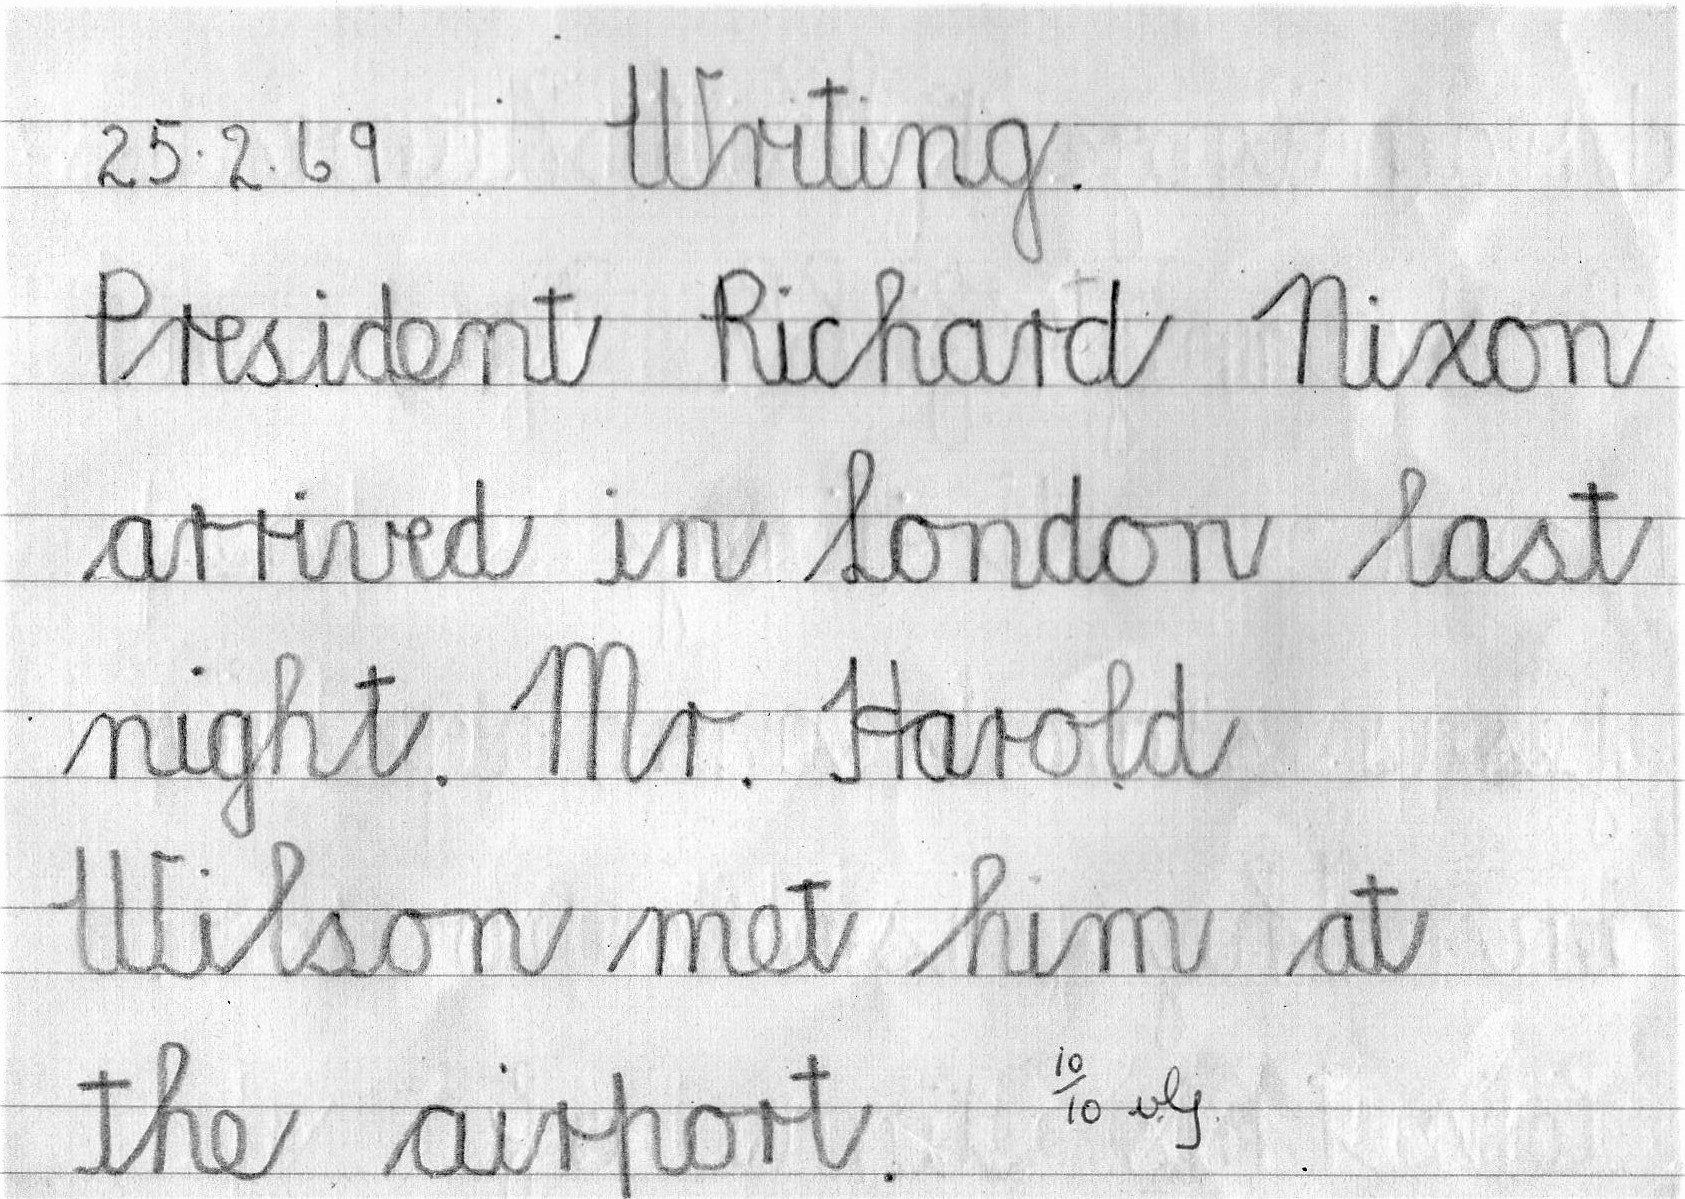 25.2.69 Writing.
President Richard Nixon
arrived in London last
night. Mr. Harold
Wilson met him at
the airport. 10/10 v.g.